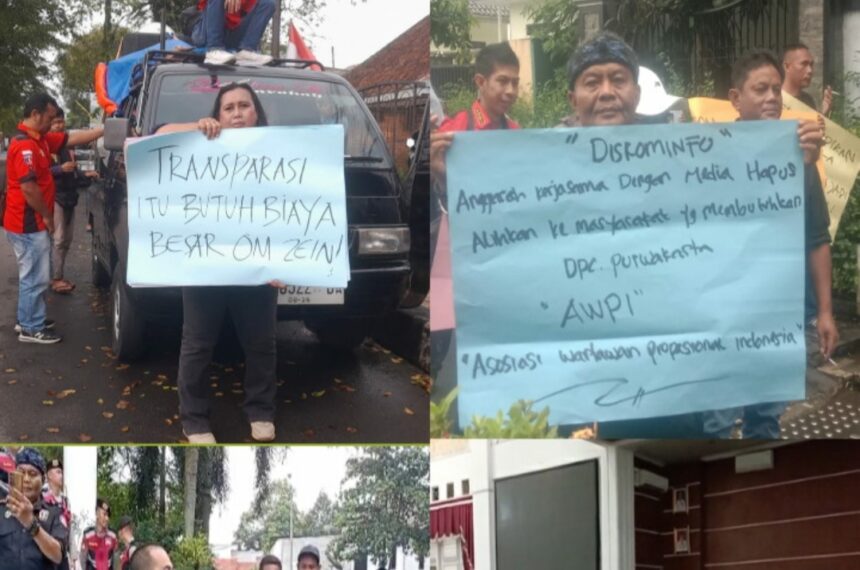 TRANSPARASI
ITU BUTUH BIAYA
BESAR OM ZEIN!
08·26
"DISKOMINFO"
Anggaran kerjasama Dengan Media Hapus
Alihkan ke masyarakat yg membutuhkan
DPC. PURWAKARTA
"AWPI"
"Asosiasi wartawan propesional indonesia"